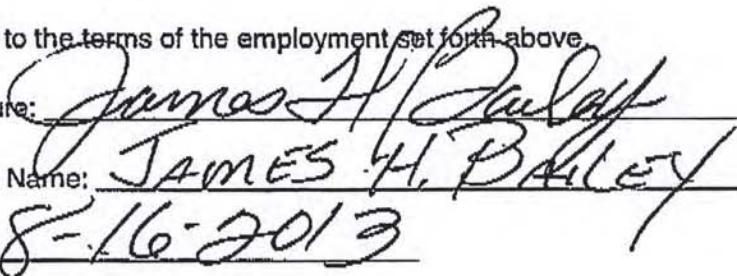 to the terms of the employment set forth above.
ure: James H Bailey
Name: JAMES H. BAILEY
8-16-2013